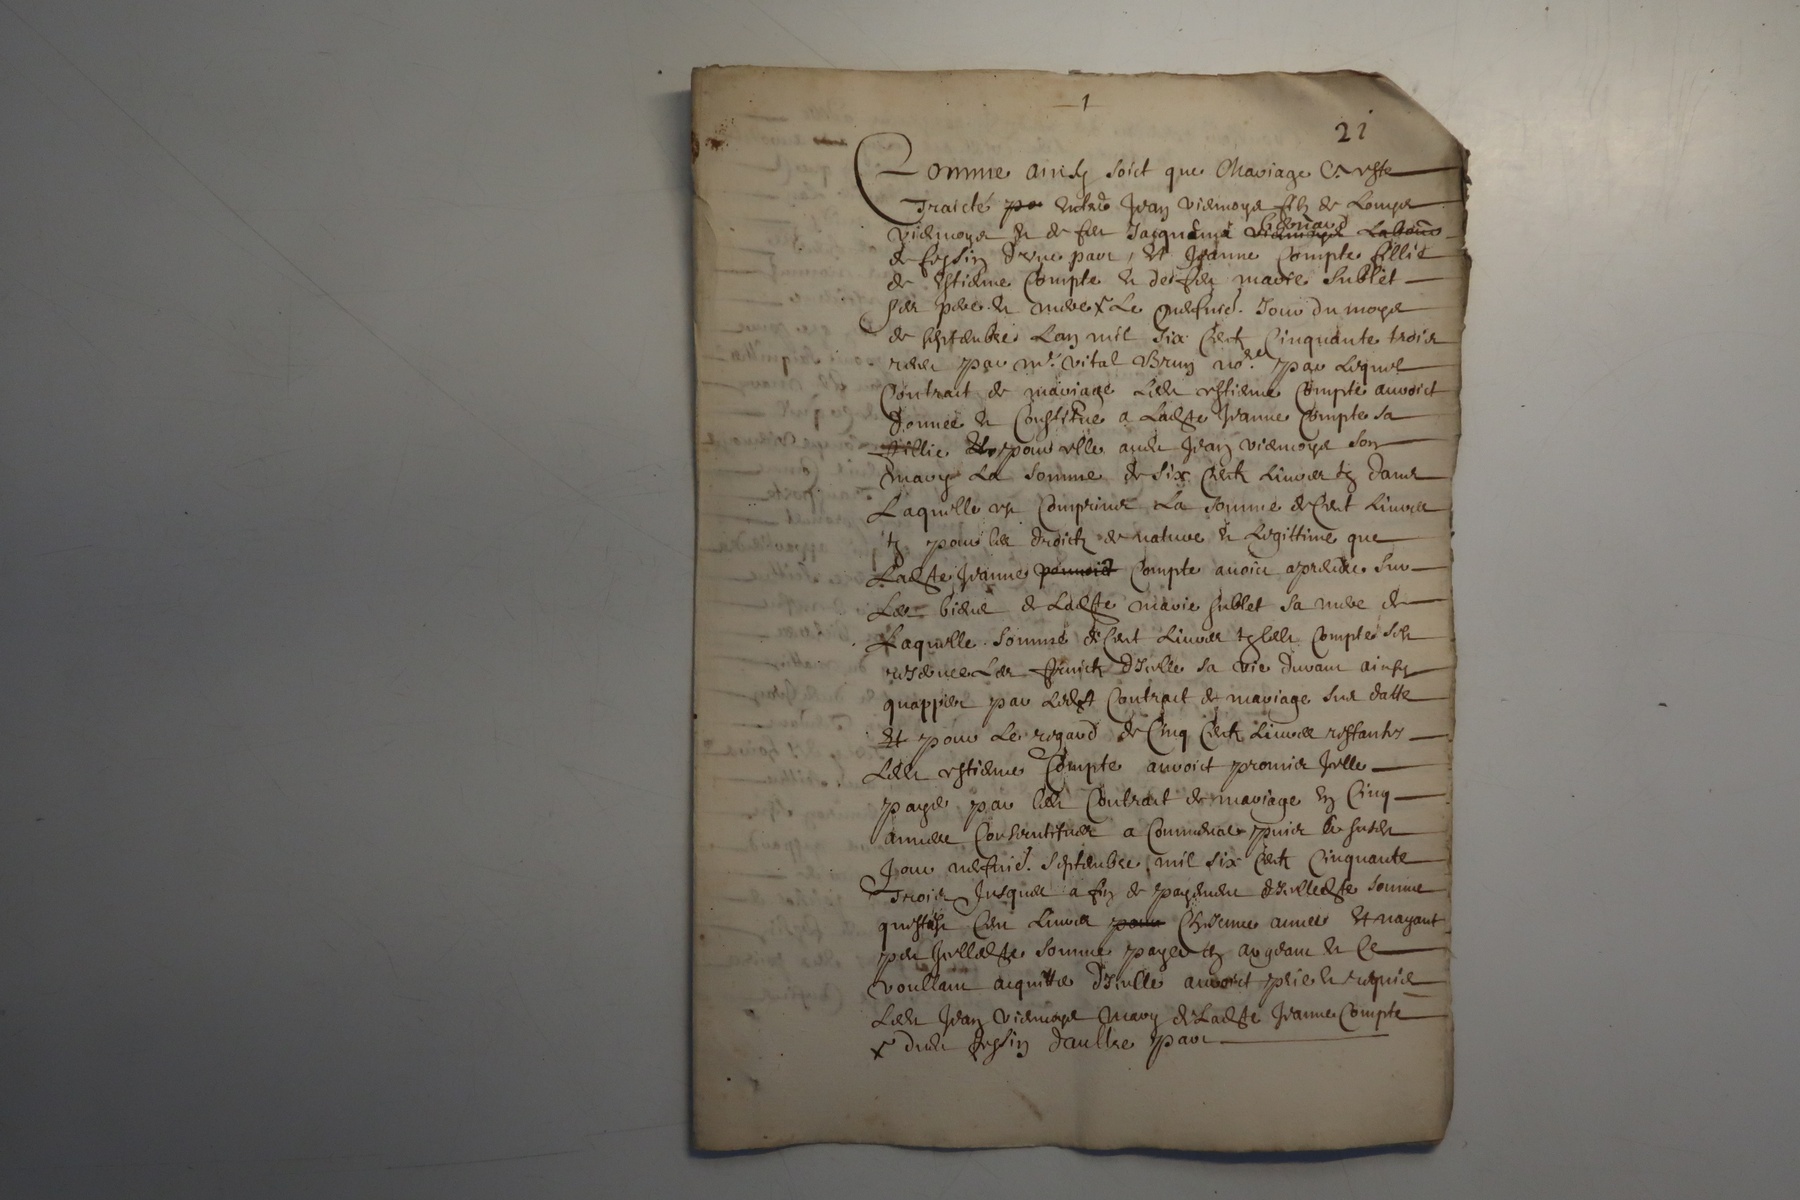 1
21
Comme ainsy soict que Mariage Ca este
Traicté pa entre Jean viemoye filz de Louys
viemoye et de feu Jacquema viemoye Labou
de fessin dune part, et Jeanne Compte fillie
de estienne Compte et de feu marie Sublet
ses pere et mere x Le Jour du moys
de septembre Lan mil six Centz Cinquante trois
receu par me. vital Brun nore. par Lequel
Contract de mariage Ledt estienne Compte auroict
donnee et Constitue a Ladte Jeanne Compte sa
fillie et pour elle audt Jean viemoye son
mary La somme de six Centz Liures tz dans
Laquelle est Comprinse La somme de Cent Liures
tz pour les droictz de nature et Legittime que
Ladte Jeanne pouuoict Compte auoir a prendre sur
Les biens de Ladte marie sublet sa mere de
Laquelle somme de Cent Liures tz Ledt Compte sest
reserue Les fruictz dicelle sa vie durant ainsy
quappert par Ledt Contract de mariage sus datte
Et pour Le regard de Cinq Centz Liures restantes
Ledt estienne Compte auroict promis Icelle
payer par led Contract de mariage en Cinq
annees Consecutifues a Commencer puis Le susdt
Jour septembre mil six Centz Cinquante
Trois Jusques a fin de payement dicelledte somme
questoit Cent Liures pour Chascune annee Et nayant
peu Icelledte somme payer tz argent et Ce
voullant acquitter dicelle auroict prie et requis
Ledt Jean viemoye Mary de Ladte Jeanne Compte
x dudt fessin daultre part